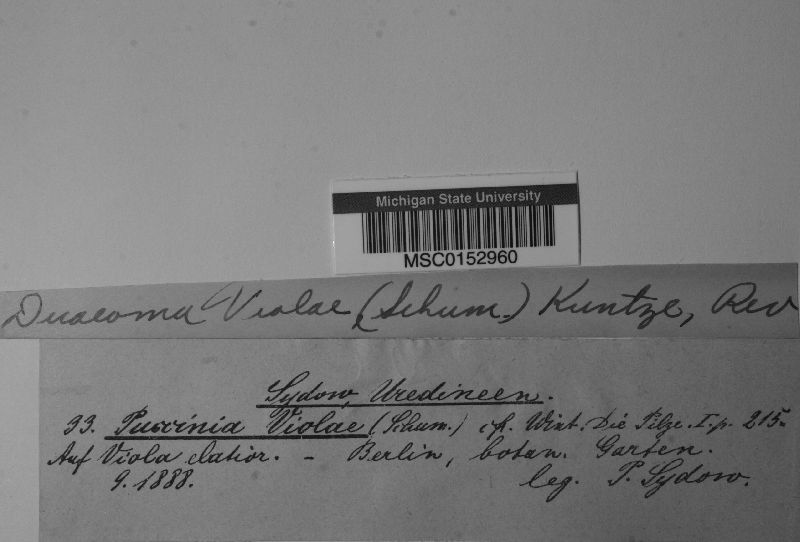 Michigan State University
MSC0152960
Dicaeoma Violae (Schum.) Kuntze, Rev
Sydow, Uredineen.
33. Puccinia Violae (Schum.) cfr. Wint. Die Pilze. I. p. 215.
Auf Viola elatior. – Berlin, botan. Garten.
9. 1888. leg. P. Sydow.